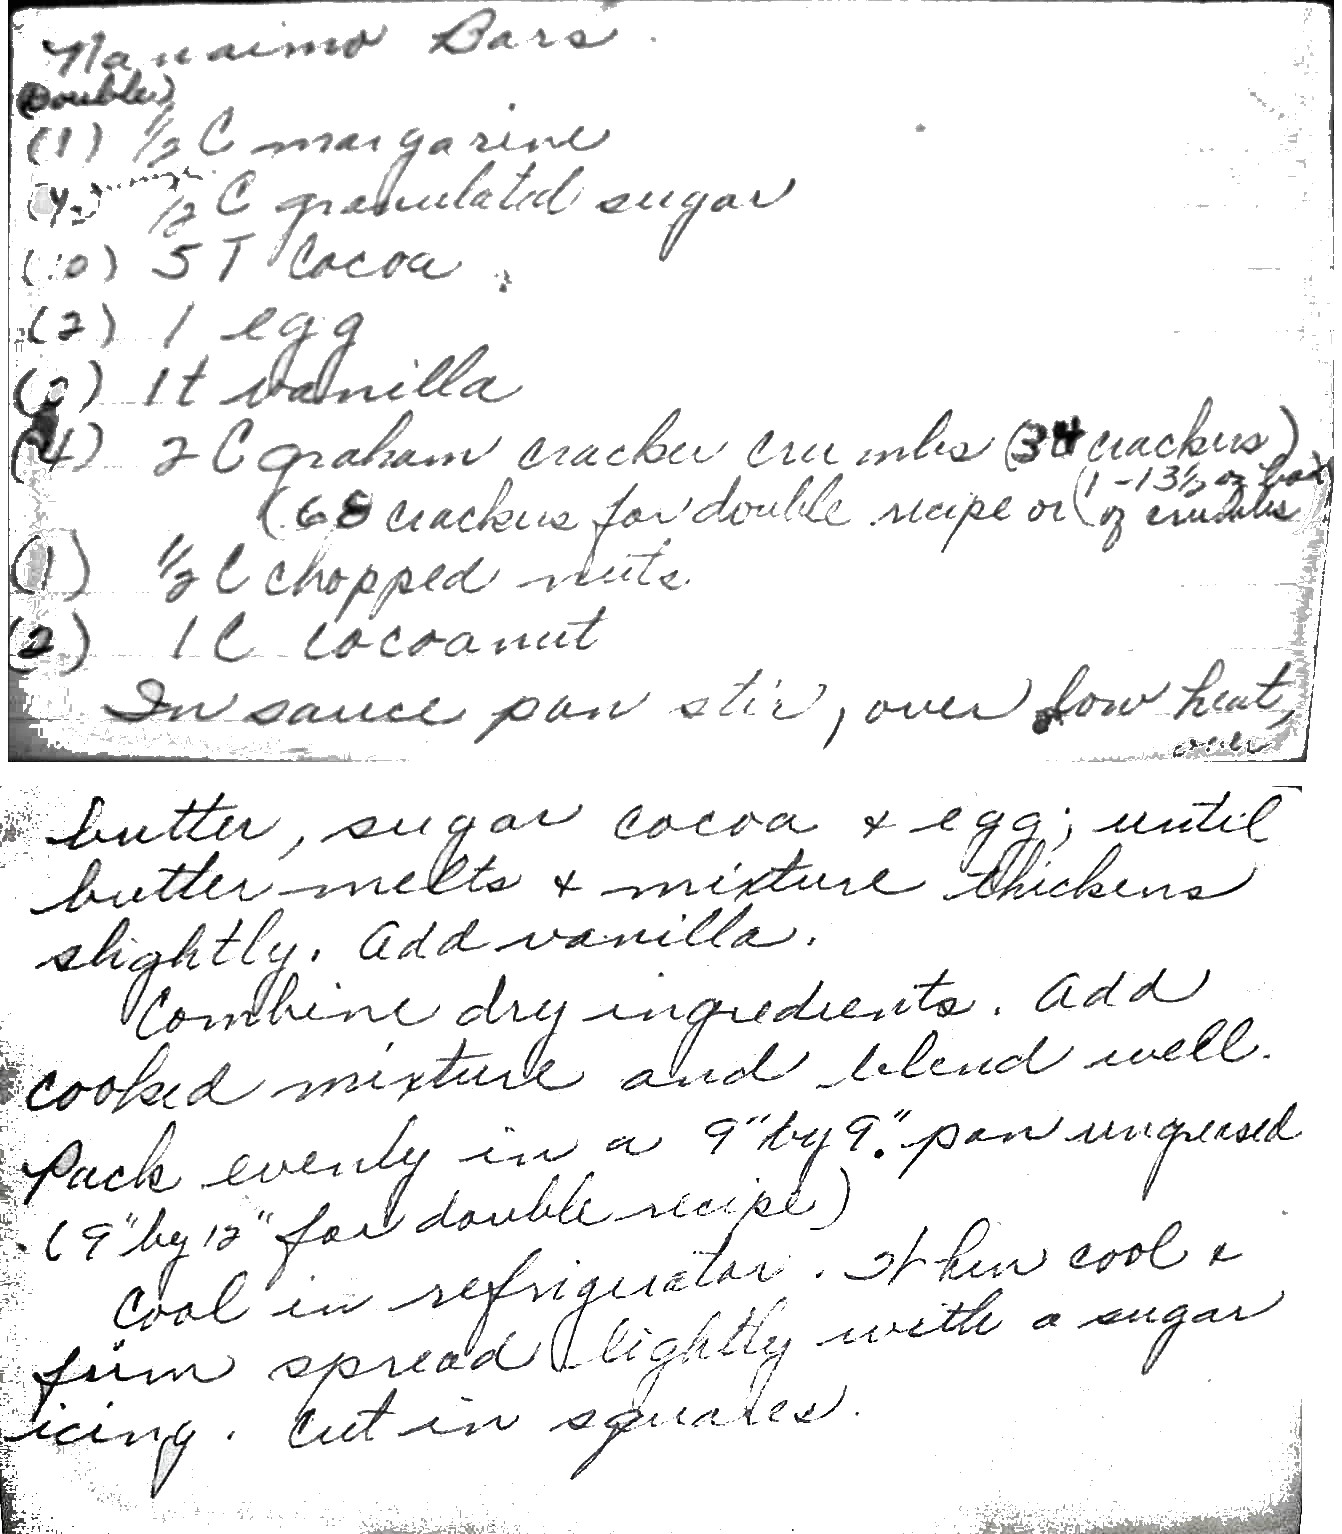 Nanaimo Bars.
(Double)
(1) 1/2 C margarine
1/2 C granulated sugar
(10) 5 T Cocoa
(2) 1 egg
(2) 1 t vanilla
(4) 2 C graham cracker crumbs (34 crackers)
(68 crackers for double recipe or (1 - 13 1/2 oz box of crumbs)
(1) 1/2 C chopped nuts
(2) 1 C cocoanut
In sauce pan stir, over low heat,
over
butter, sugar cocoa & egg; until
butter melts & mixture thickens
slightly. Add vanilla.
Combine dry ingredients. Add
cooked mixture and blend well.
Pack evenly in a 9" by 9". pan ungreased
(9" by 12" for double recipe)
Cool in refrigerator. When cool &
firm spread lightly with a sugar
icing. Cut in squares.